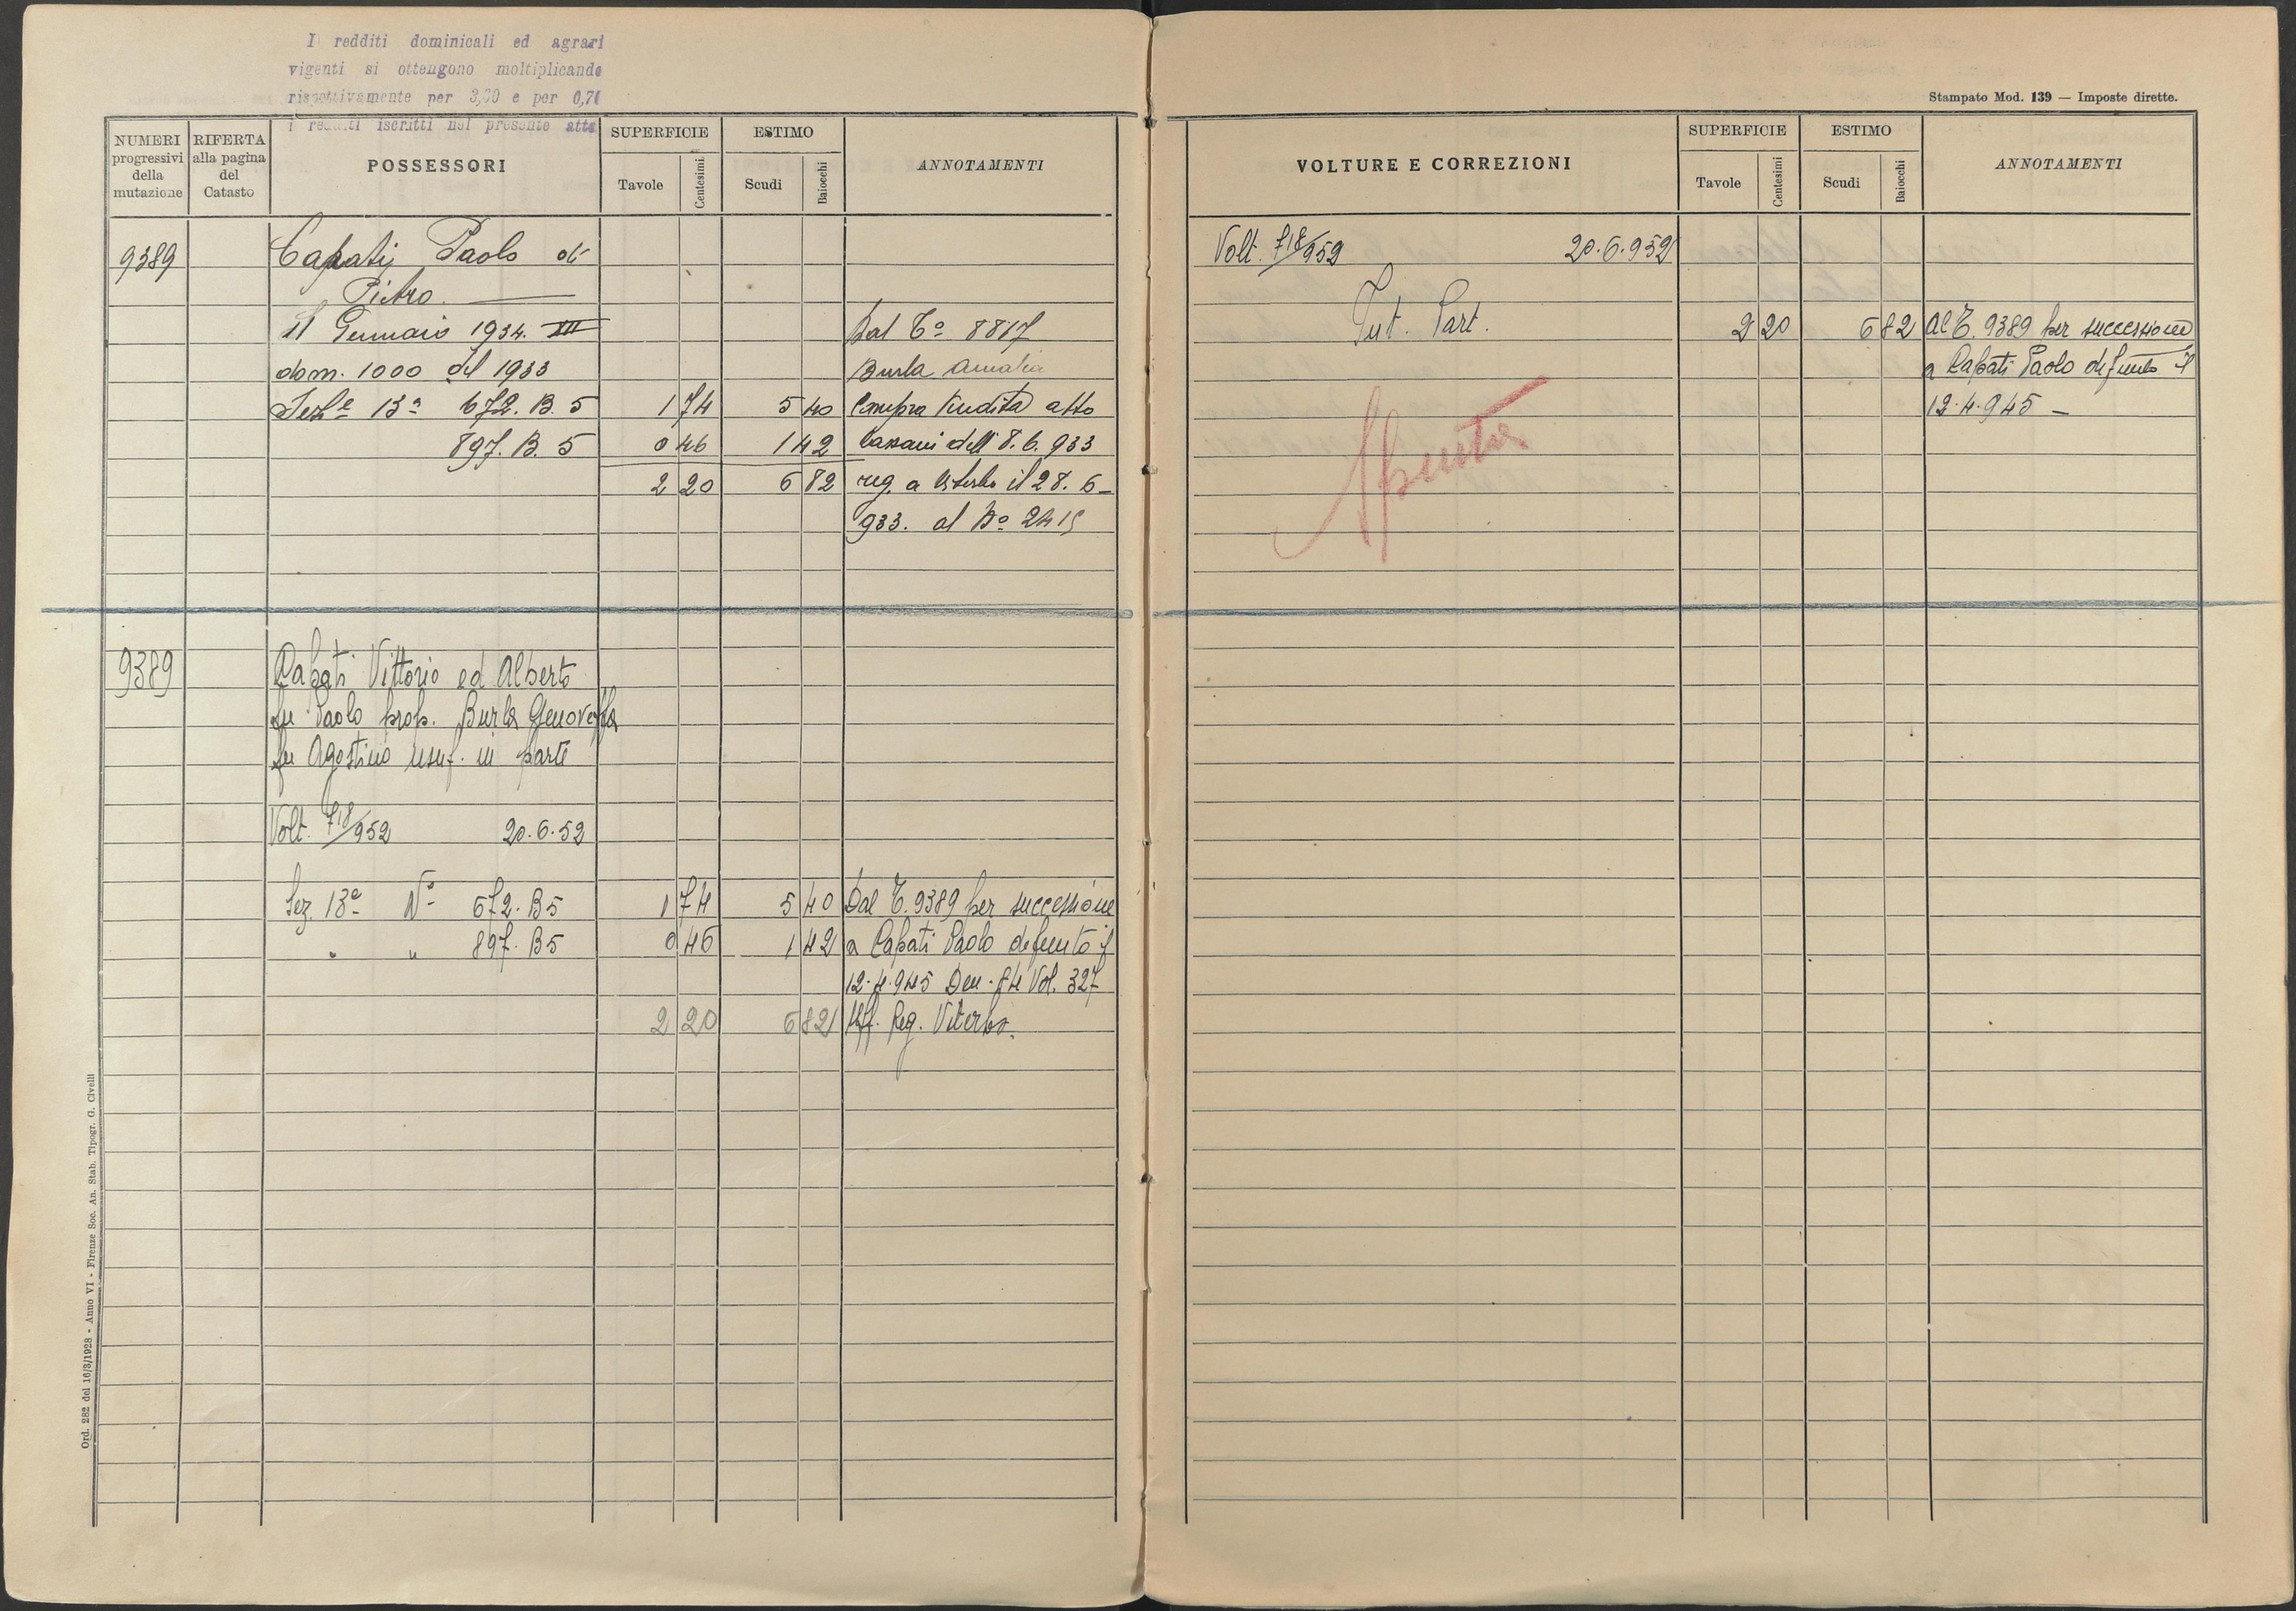 I redditi dominicali ed agrari
vigenti si ottengono moltiplicando
rispettivamente per 3,30 e per 0,70
i redditi iscritti nel presente atto
NUMERI progressivi della mutazione
RIFERTA alla pagina del Catasto
POSSESSORI
SUPERFICIE
Tavole Centesimi
ESTIMO
Scudi Baiocchi
ANNOTAMENTI
9389 Capati Paolo di
Pietro.
11 Gennaio 1934. XII Dal T.º 8817
dom. 1000 del 1933 Burla Amalia
Sez.e 13ª 672. B. 5 1 74 5 40 Compra Vendita atto
897. B. 5 0 46 1 42 dell' 8. 6. 933
2 20 6 82 reg. a Viterbo il 28. 6-
933. al Nº 2415
9389 Capati Vittorio ed Alberto
fu Paolo prop. Burla Genoveffa
fu Agostino usuf. in parte
Volt. 718/952 20.6.52
Sez. 13ª Nº 672. B5 1 74 5 40 Dal T. 9389 per successione
" " 897. B5 0 46 1 42 a Capati Paolo defunto il
12.4.945 Den. 74 Vol. 327
2 20 6 82 Uff. Reg. Viterbo.
Ord. 282 del 16/3/1928 - Anno VI - Firenze Soc. An. Stab. Tipogr. G. Civelli
Stampato Mod. 139 — Imposte dirette.
VOLTURE E CORREZIONI
SUPERFICIE
Tavole Centesimi
ESTIMO
Scudi Baiocchi
ANNOTAMENTI
Volt. 718/952 20.6.952
Int. Part. 2 20 6 82 Al T. 9389 per successione
a Capati Paolo defunto il
12.4.945 —
Spenta